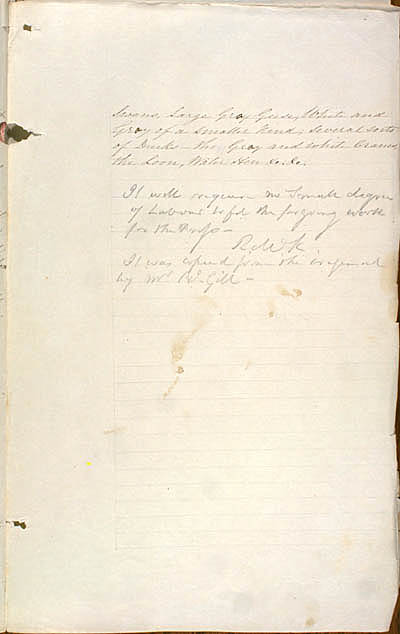 Swans, Large Gray Geese, White and
Gray of a Smaller kind, Several sorts
of Ducks – the Gray and white Cranes,
the Loon, Water Hen &c. &c.
It will require no Small degree
of Labour to fit the forgoing work
for the Press –
R. McW. K.
It was copied from the original
by Mr. W. Gill –